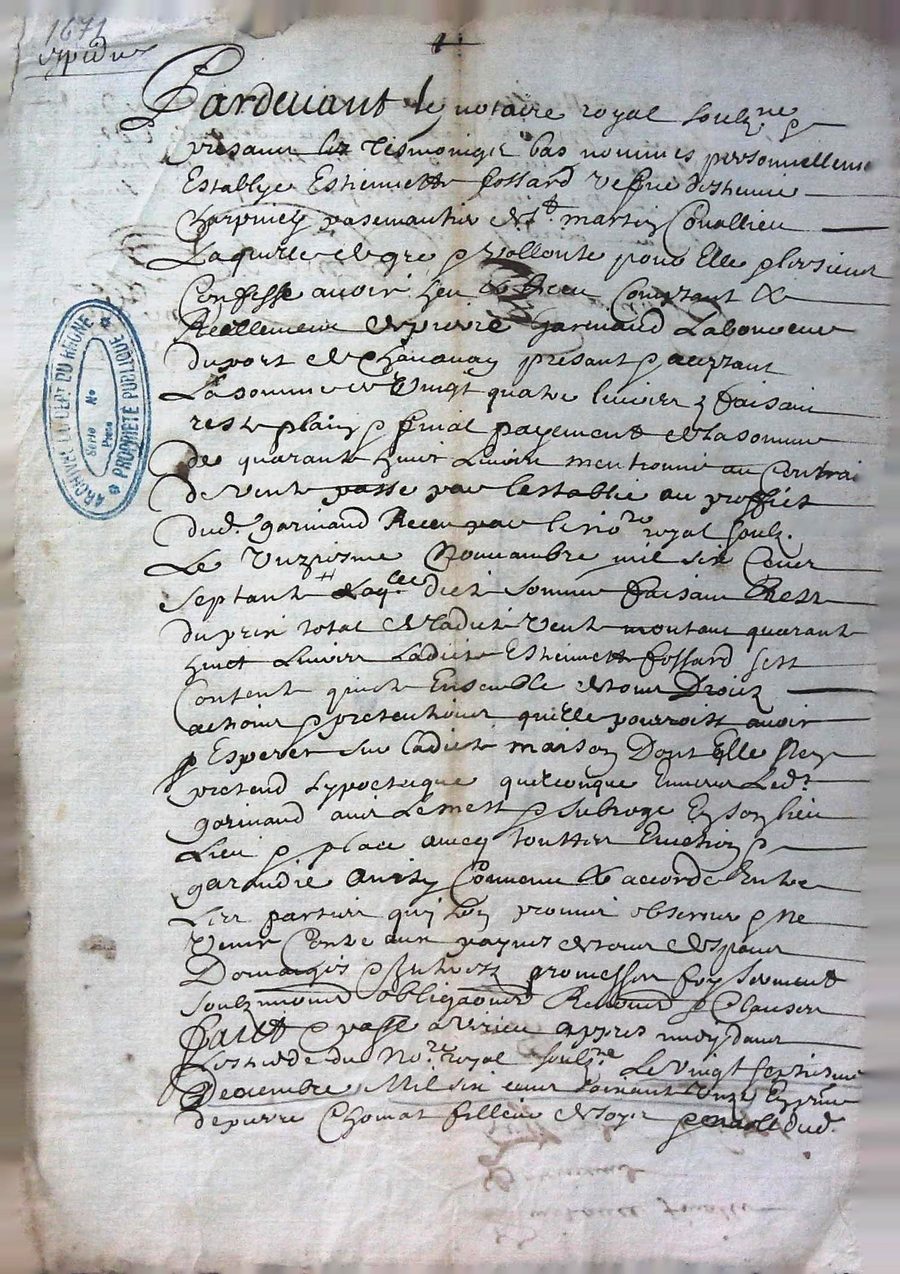 1671
+
Pardevant le notaire royal soulzne
presant les tesmoingz bas nommes personnellemt
establye Estiennette fossard vefve d'estienne
Charpiney passemantier de St martin Cornallieu
Laquelle de gre & vollonte pour elle & les sieur
Confesse avoir heu & Receu Comptant &
Reellement de pierre Garinaud Laboureur
du port de Chavanay presant & aceptant
La somme de vingt quatre livres & faisant
reste plain & finial payement de la somme
de quarante huit Livres mentionne au Contrat
de vente passe par lestablie au proffict
dud. garinaud Receu par le nore royal soulz.
Le unziesme Novambre mil six Cens
septante + Laqlle dicte somme faisant Reste
du prix total de ladicte vente montant quarante
huict Livres Ladicte Estiennette fossard sest
Contente quicte Ensemble de tous Droictz
actions & pretentions quelle pourroist avoir
& Esperer sur ladicte maison Dont Elle
pretend hypocteque quelconque Envers Led.t
garinaud met & subroge En son lieu
Lieu & place avecq touttes Eviction &
garandie Ainsy Convenu & accorde Entre
Les parties qui lon promis observer & ne
venir Contre aux paynes de tous despans
Domaiges & Interestz promesses foy serment
soubzmions obligaons Renons & Clauses
faict & passe a Verieu appres midy dans
Lestude du Nore royal soulzne Le vingt septiesme
Decembre Mil six cens soixante unze En prnce
de pierre Chomat fillieu de Roysey dud.
ARCHIVES DU DEPT DU RHONE
PROPRIÉTÉ PUBLIQUE
Série No
Pièce